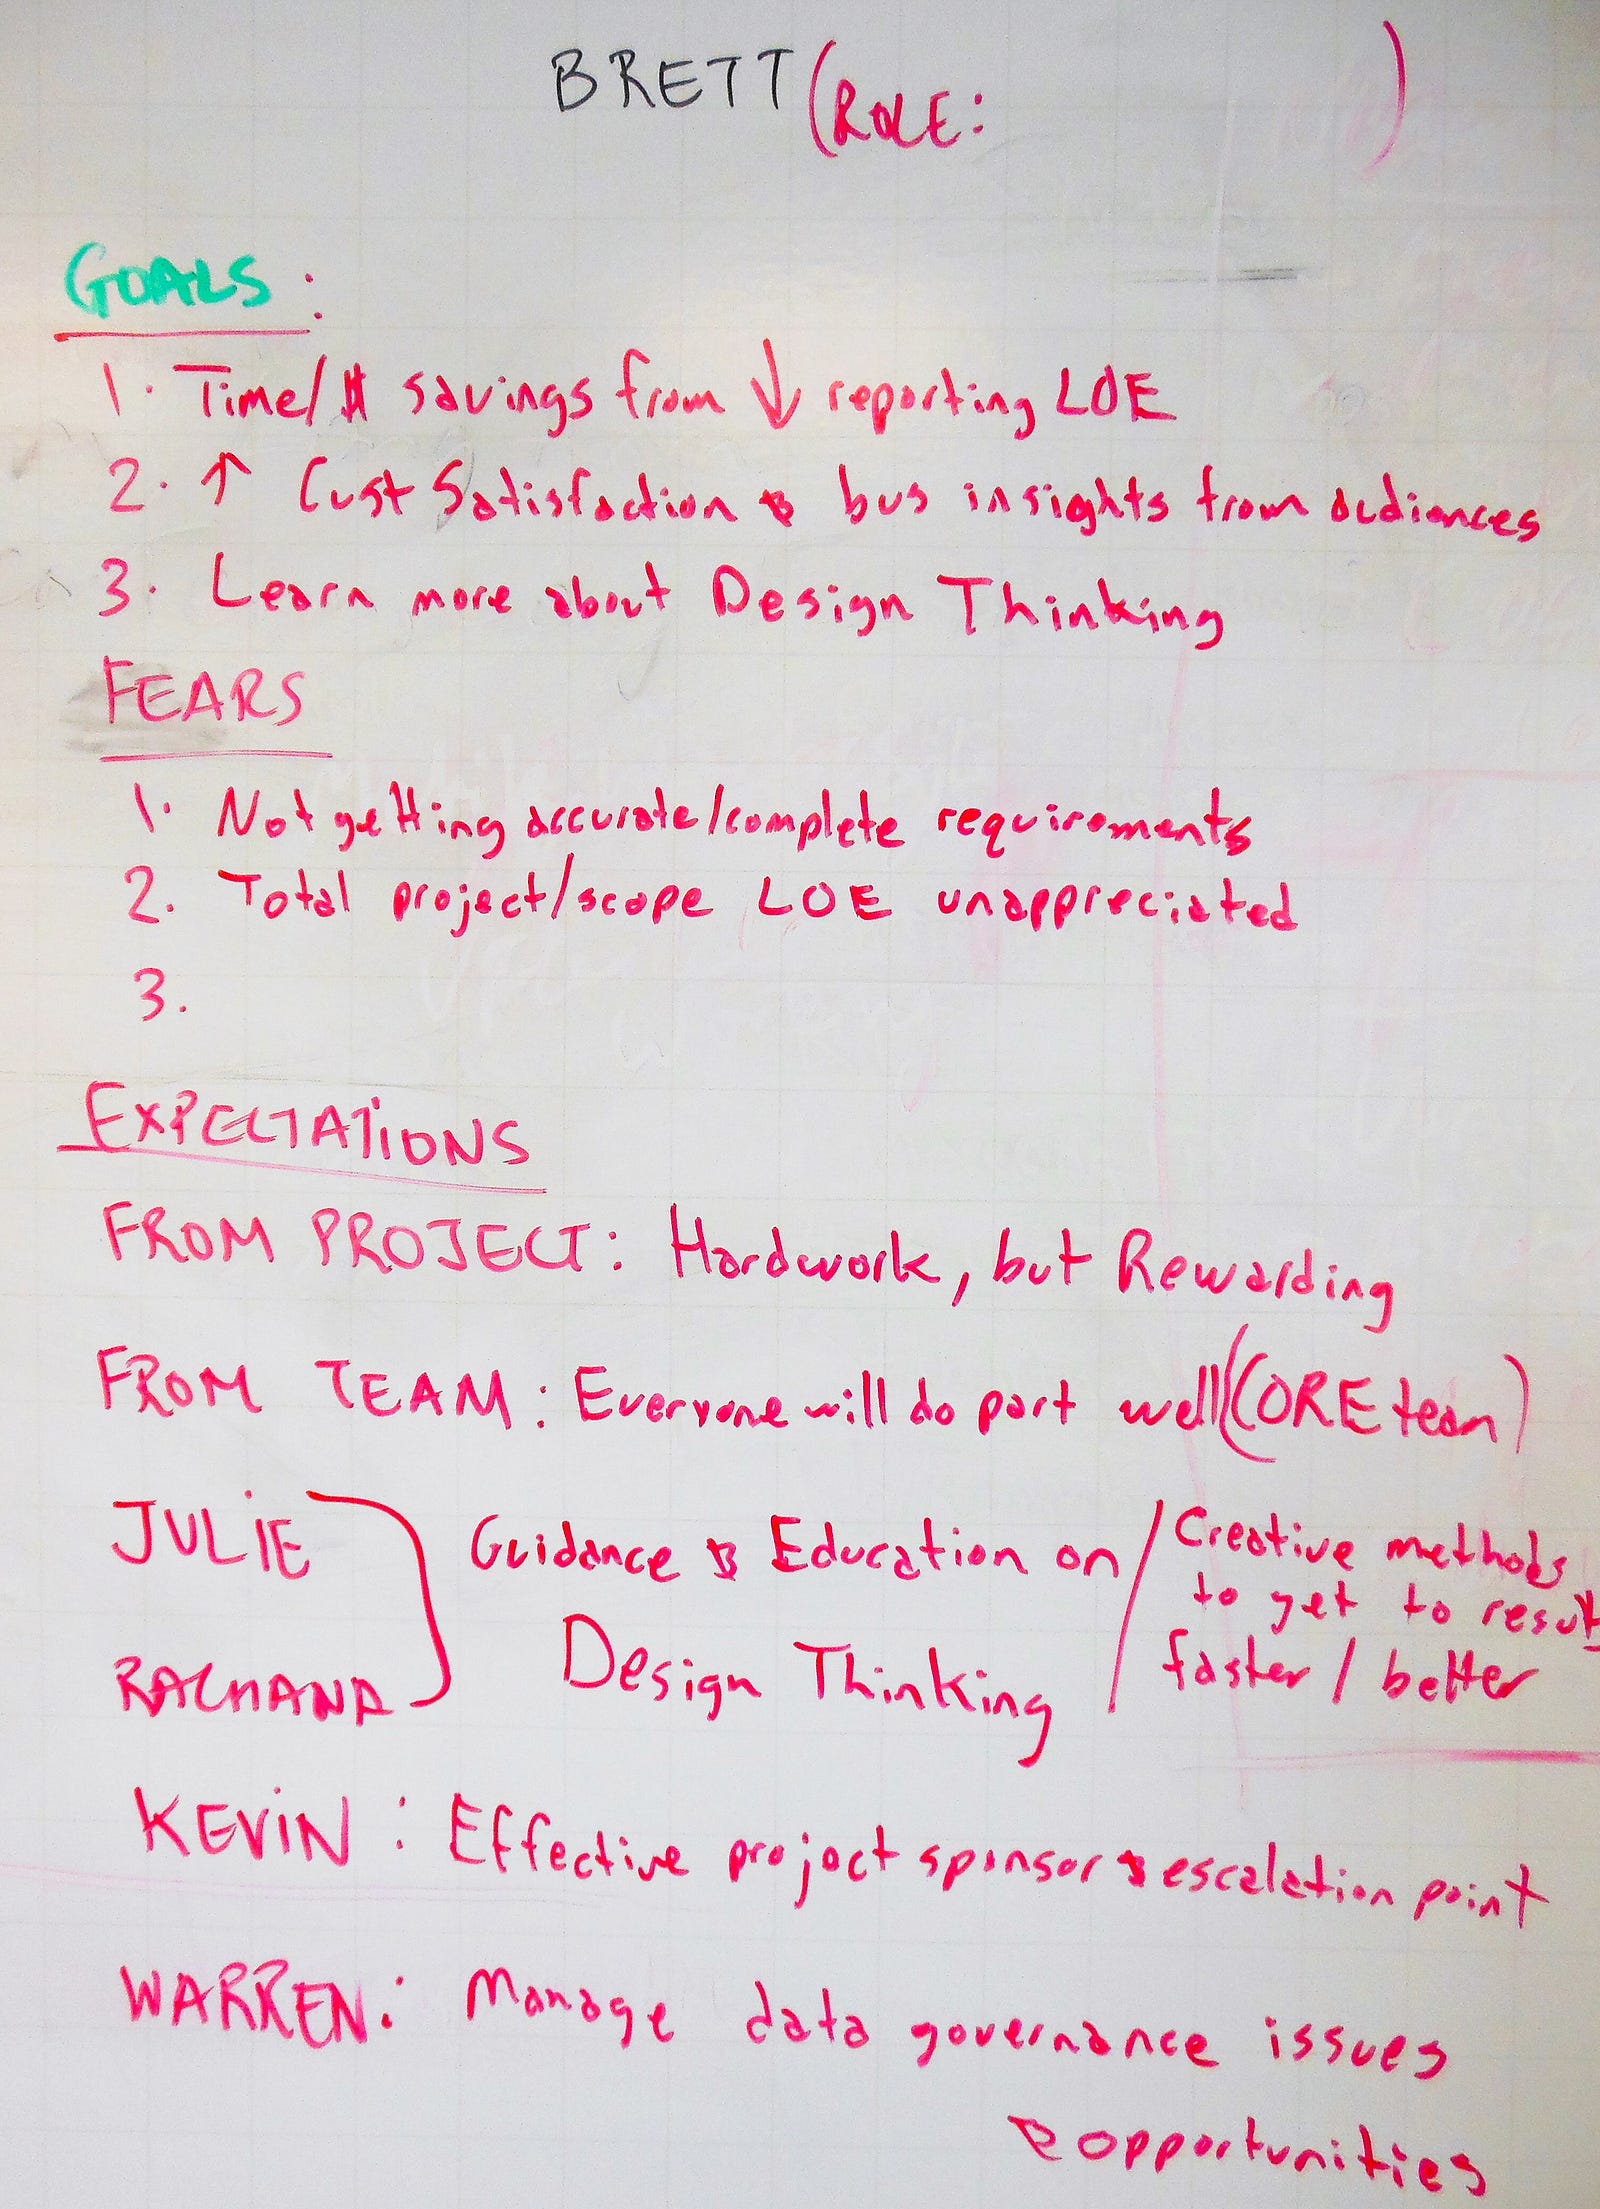 BRETT (ROLE: )
GOALS:
1. Time/$ savings from ↓ reporting LOE
2. ↑ Cust Satisfaction & bus insights from audiences
3. Learn more about Design Thinking
FEARS
1. Not getting accurate/complete requirements
2. Total project/scope LOE unappreciated
3.
EXPECTATIONS
FROM PROJECT: Hardwork, but Rewarding
FROM TEAM: Everyone will do part well (CORE team)
JULIE
RACHANA
Guidance & Education on /
Design Thinking
Creative methods
to get to results
faster / better
KEVIN: Effective project sponsor & escalation point
WARREN: Manage data governance issues
& opportunities